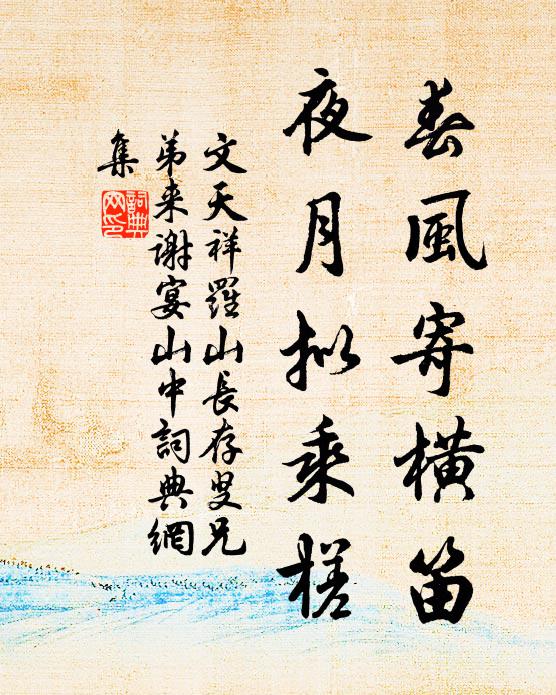 春風寄橫笛
夜月拟乘槎
文天祥羅山長存叟兄
弟来謝宴山中詞典網
集
詞典
网印